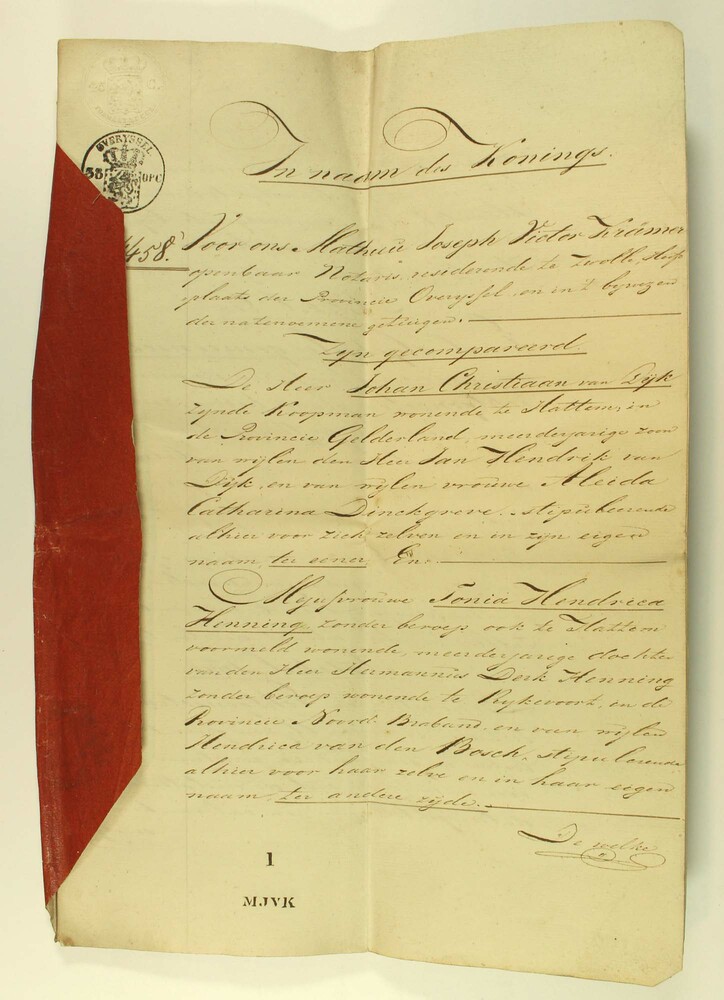 OVERYSSEL
35 OPC
In naam des Konings.
458.
Voor ons Mathieu Joseph Victor Krämer
openbaar Notaris, residerende te Zwolle, Hoofd
plaats der Provincie Overyssel, en in 't bywezen
der natenoemene getuigen.
Zyn gecompareerd
De Heer Johan Christiaan van Dijk
zynde Koopman wonende te Hattem, in
de Provincie Gelderland, meerderjarige zoon
van wijlen den Heer Jan Hendrik van
Dijk, en van wijlen vrouwe Aleida
Catharina Dinckgreve, stipuleerende
alhier voor zich zelven en in zijn eigen
naam, ter eener En
Mejufvrouwe Tonia Hendrica
Henning, zonder beroep ook te Hattem
voormeld wonende, meerderjarige dochter
van den Heer Hermannus Derk Henning
zonder beroep wonende te Rykevoort, in de
Provincie Noord-Braband en van wijlen
Hendrica van den Bosch, stipulerende
alhier voor haar zelve en in haar eigen
naam, ter andere zijde.
De welke
1
MJVK